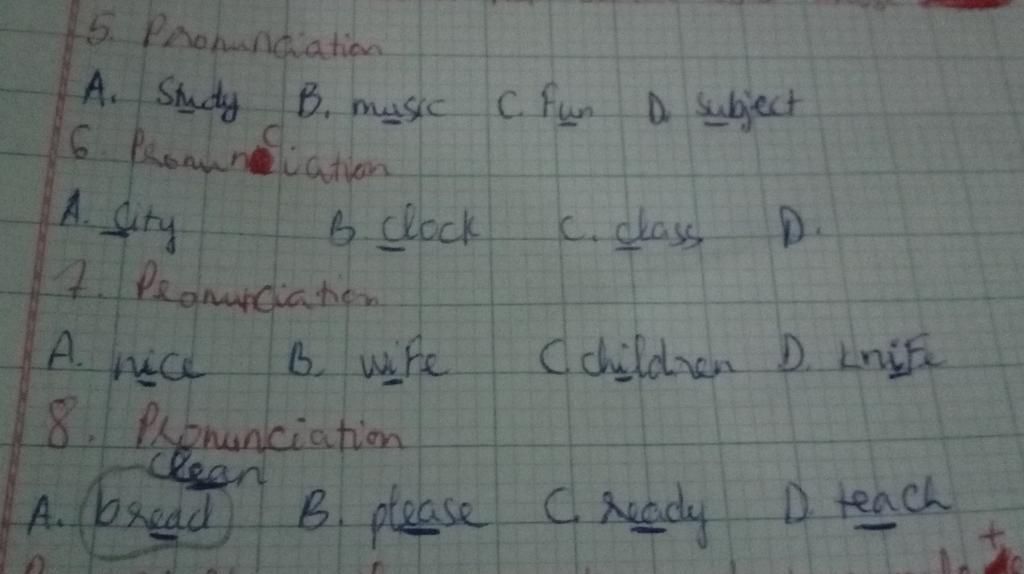 5. Pronunciation
A. Study B. music C. Fun D. subject
6. Pronunciation
A. City B. Clock C. class D.
7. Pronunciation
A. nice B. wife C. children D. knife
8. Pronunciation
clean
A. bread B. please C. ready D. teach